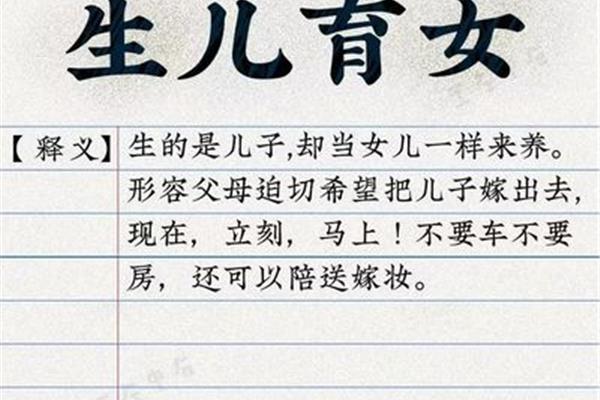 生儿育女
【释义】生的是儿子,却当女儿一样来养。
形容父母迫切希望把儿子嫁出去,
现在，立刻，马上！不要车不要
房，还可以陪送嫁妆。